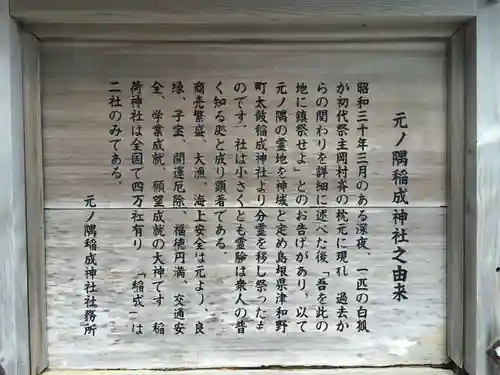 元ノ隅稲成神社之由来
昭和三十年三月のある深夜、一匹の白狐
が初代祭主岡村斉の枕元に現れ 過去か
らの関わりを詳細に述べた後「吾を此の
地に鎮祭せよ」とのお告げがあり、以て
元ノ隅の霊地を神域と定め島根県津和野
町太鼓稲成神社より分霊を移し祭ったも
のです。社は小さくとも霊験は衆人の普
く知る処と成り顕著である。
商売繁盛、大漁、海上安全は元より、良
縁、子宝、開運厄除、福徳円満、交通安
全、学業成就、願望成就の大神です 稲
荷神社は全国で四万社有り 「稲成」は
二社のみである。
元ノ隅稲成神社社務所